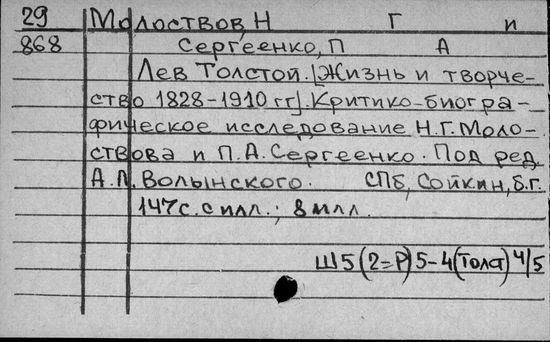 29 Молоствов, Н Г и
868 Сергеенко, П А
Лев Толстой. [Жизнь и творче-
ство 1828-1910 гг]. Критико-биогра-
фическое исследование Н.Г. Моло-
ствова и П.А. Сергеенко. Под ред.
А.Л. Волынского. СПб, Сойкин, б.г.
147 с. с илл.; 8 илл.
Ш5(2=Р)5-4(Толст) 4/5